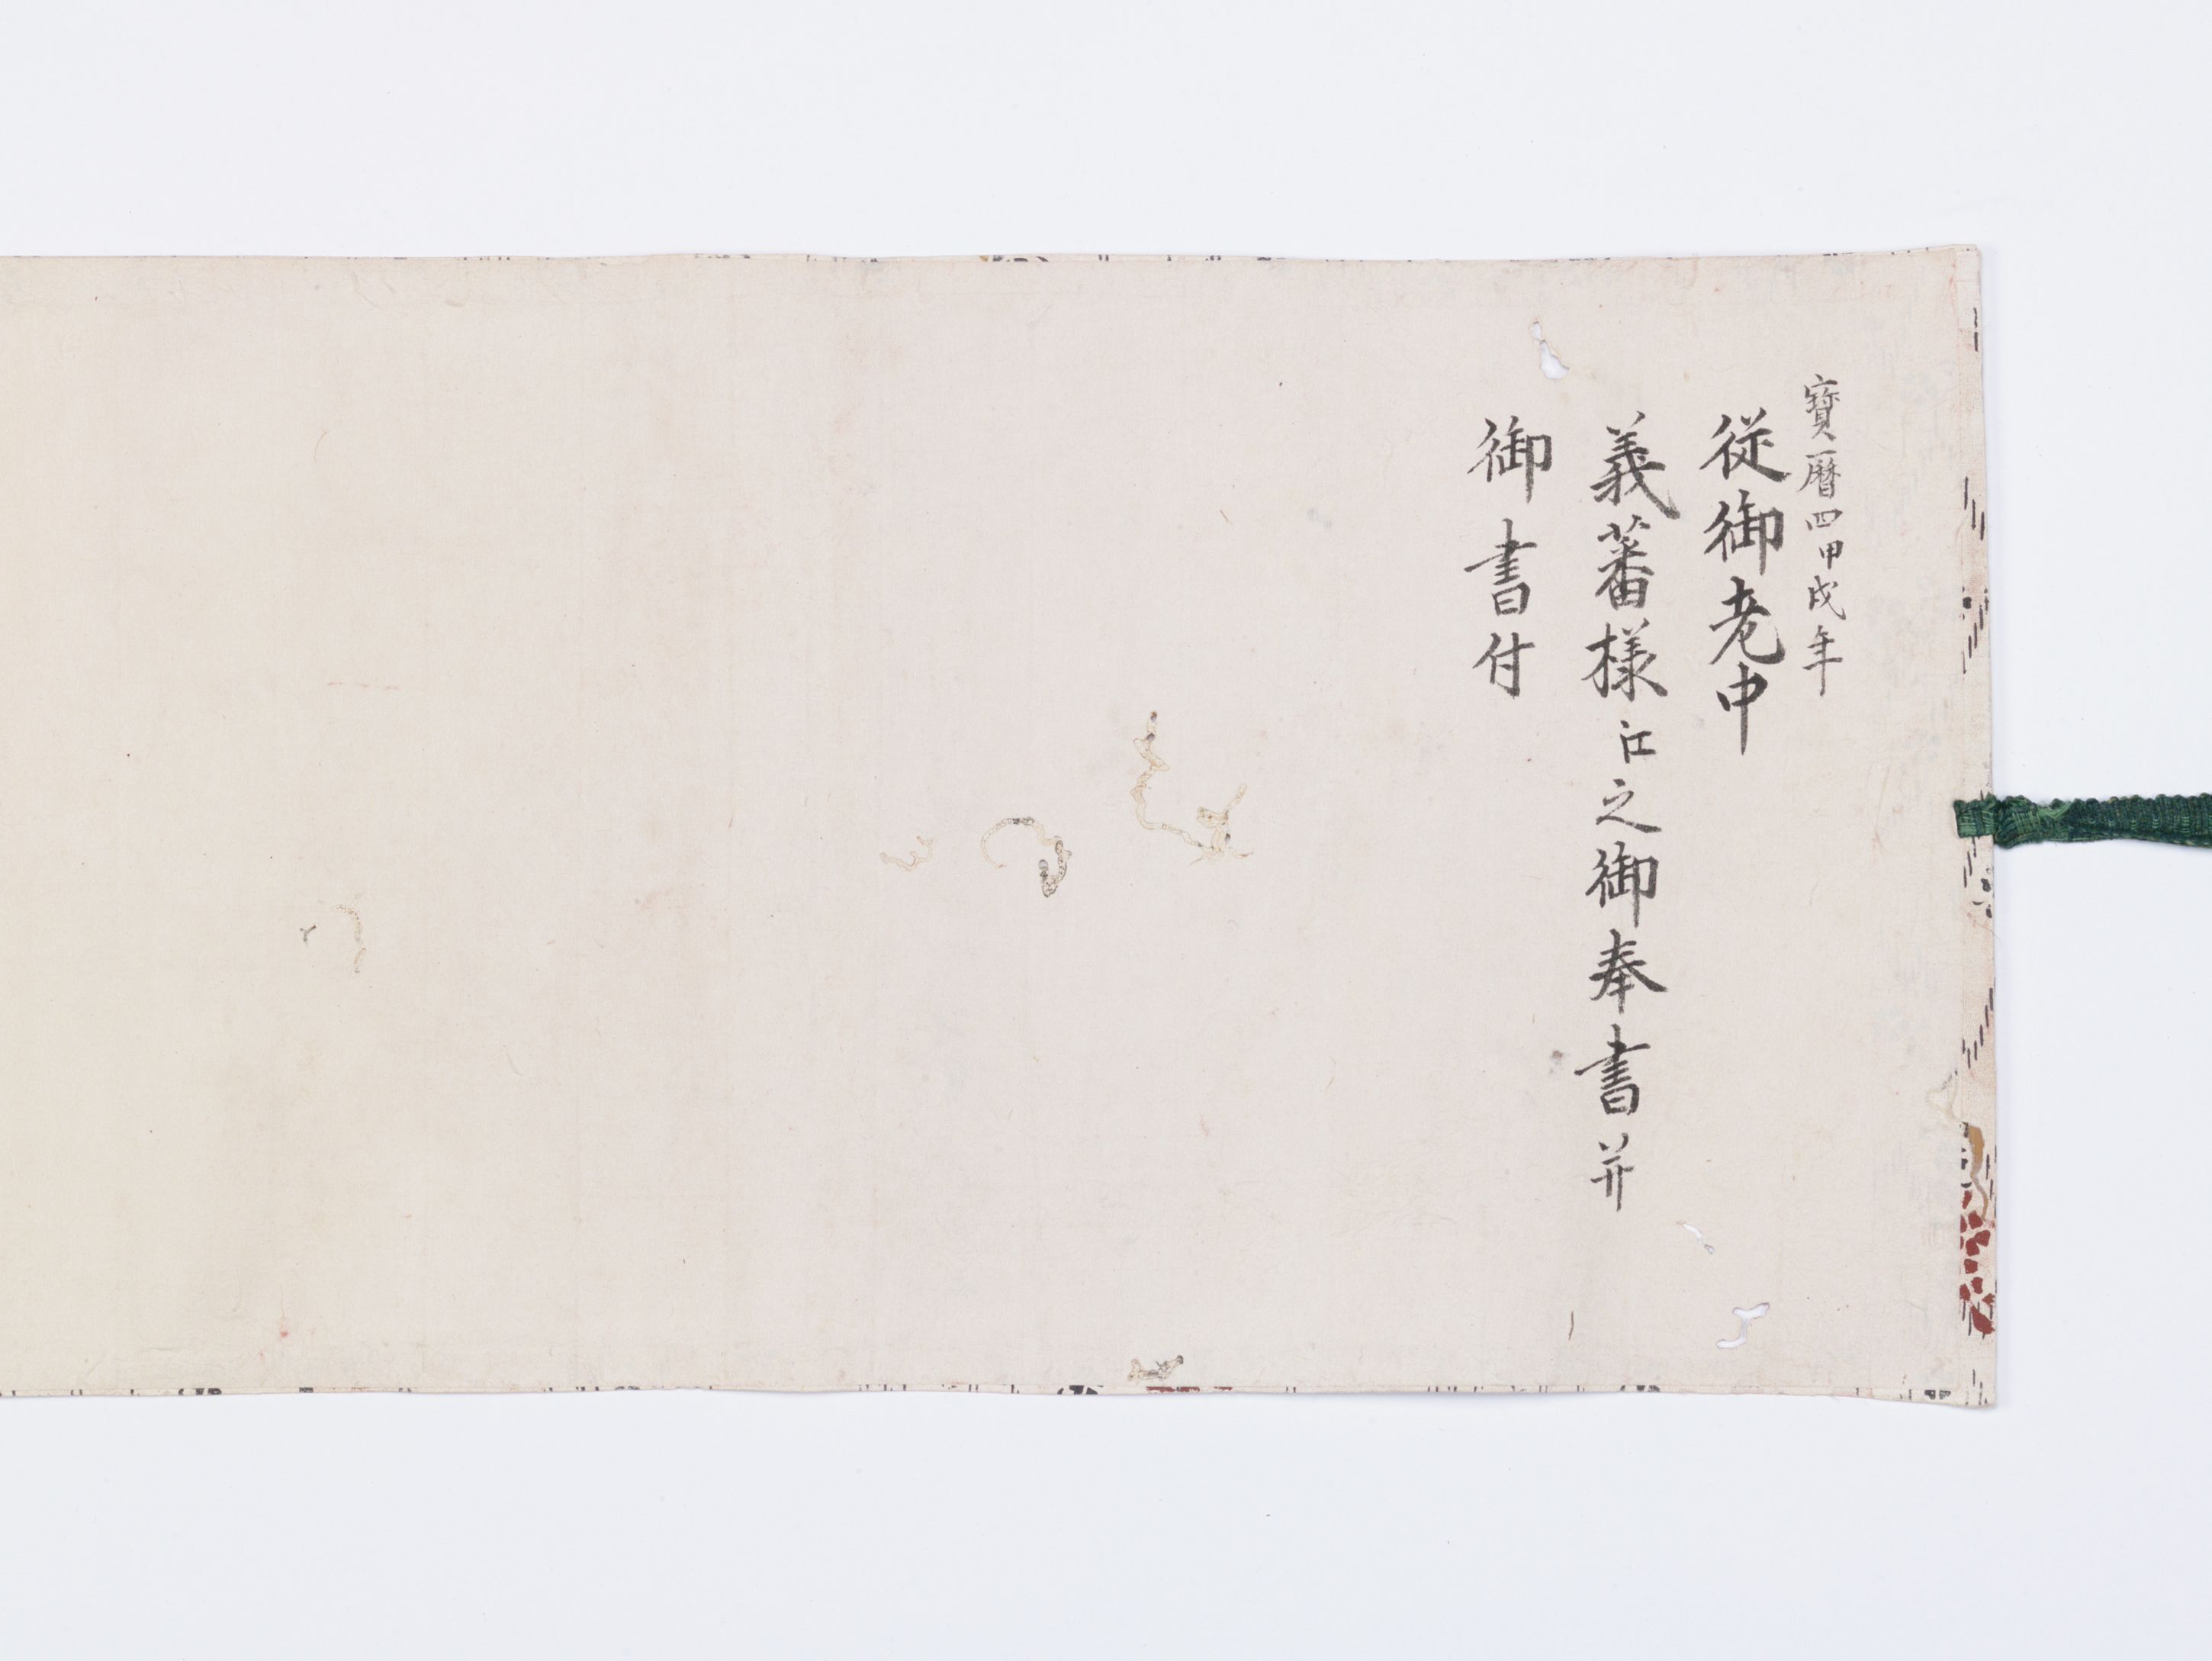 寳暦四甲戌年
従御老中
義蕃様江之御奉書并
御書付